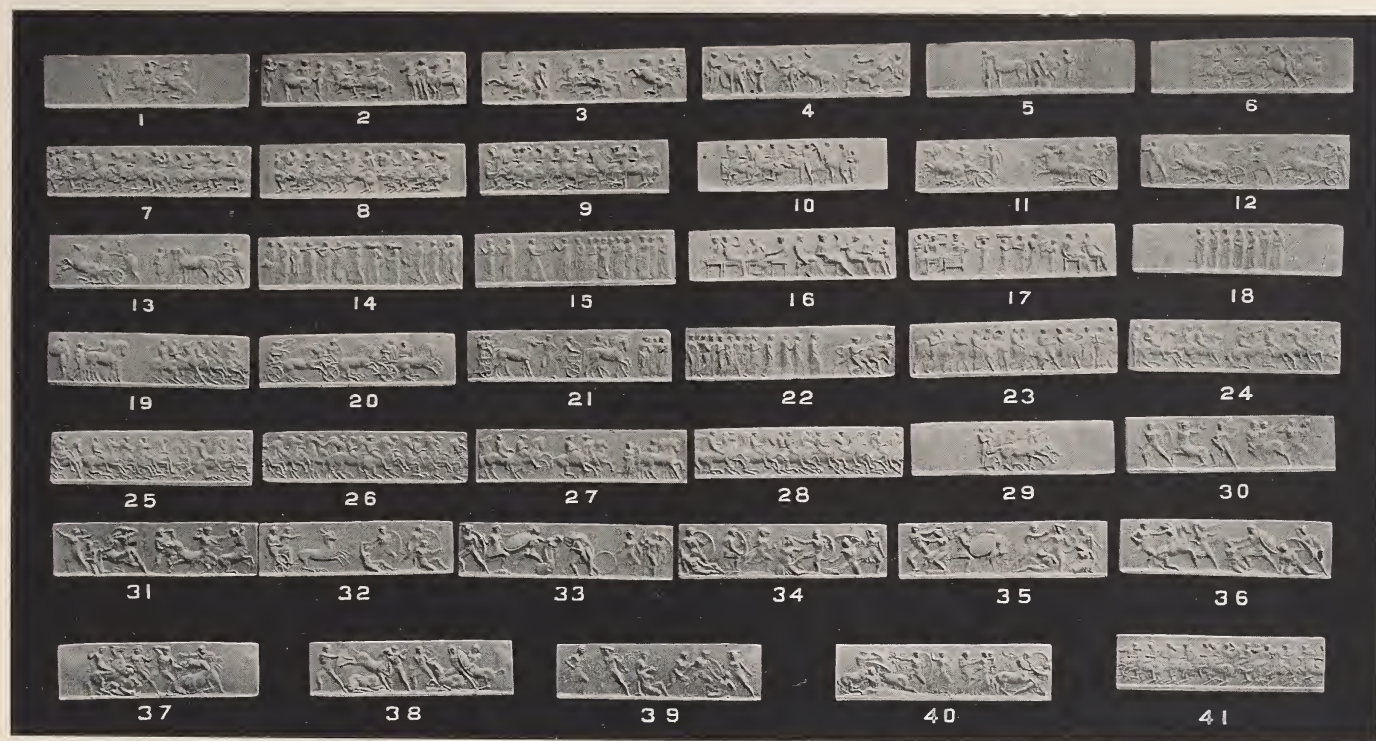 1 2 3 4 5 6
7 8 9 10 11 12
13 14 15 16 17 18
19 20 21 22 23 24
25 26 27 28 29 30
31 32 33 34 35 36
37 38 39 40 41